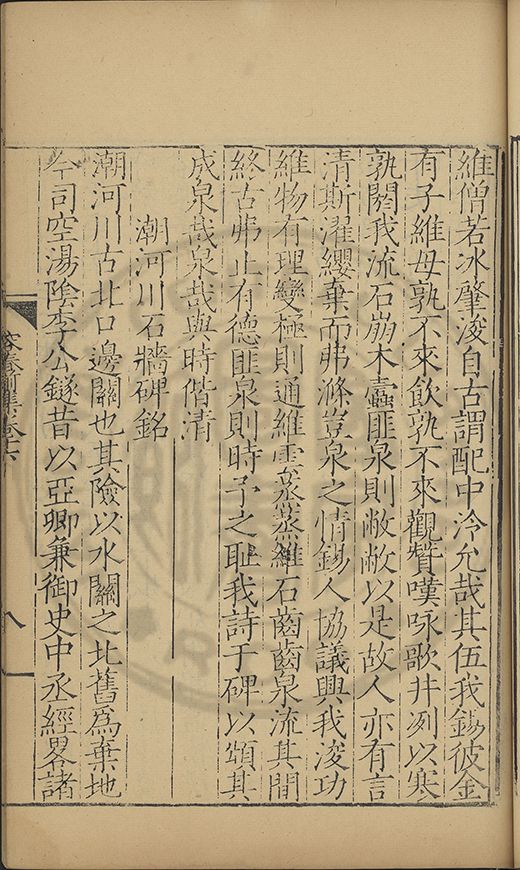 維僧若冰肇浚自古謂配中泠允哉其伍我錫彼金
有子維母孰不來飲孰不來觀贊嘆咏歌井冽以寒
孰閼我流石崩木蠹匪泉則敝敝以是故人亦有言
清斯濯纓棄而弗滌豈泉之情錫人協議興我浚功
維物有理變極則通維雲蒸蒸維石齒齒泉流其間
終古弗止有德匪泉則時予之恥我詩于碑以頌其
成泉哉泉哉與時偕清
潮河川石牆碑銘
潮河川古北口邊關也其險以水關之北舊爲棄地
今司空湯陰李公鐩昔以亞卿兼御史中丞經畧諸
春前集卷六
八